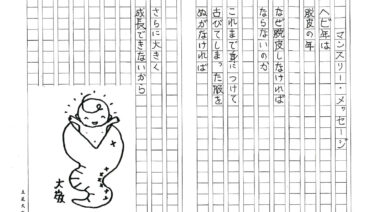 マンスリー・メッセージ
ヘビ年は
脱皮の年
なぜ脱皮しなければ
ならないのか
これまで身につけて
古びてしまった服を
ぬがなければ
さらに大きく
成長できないから